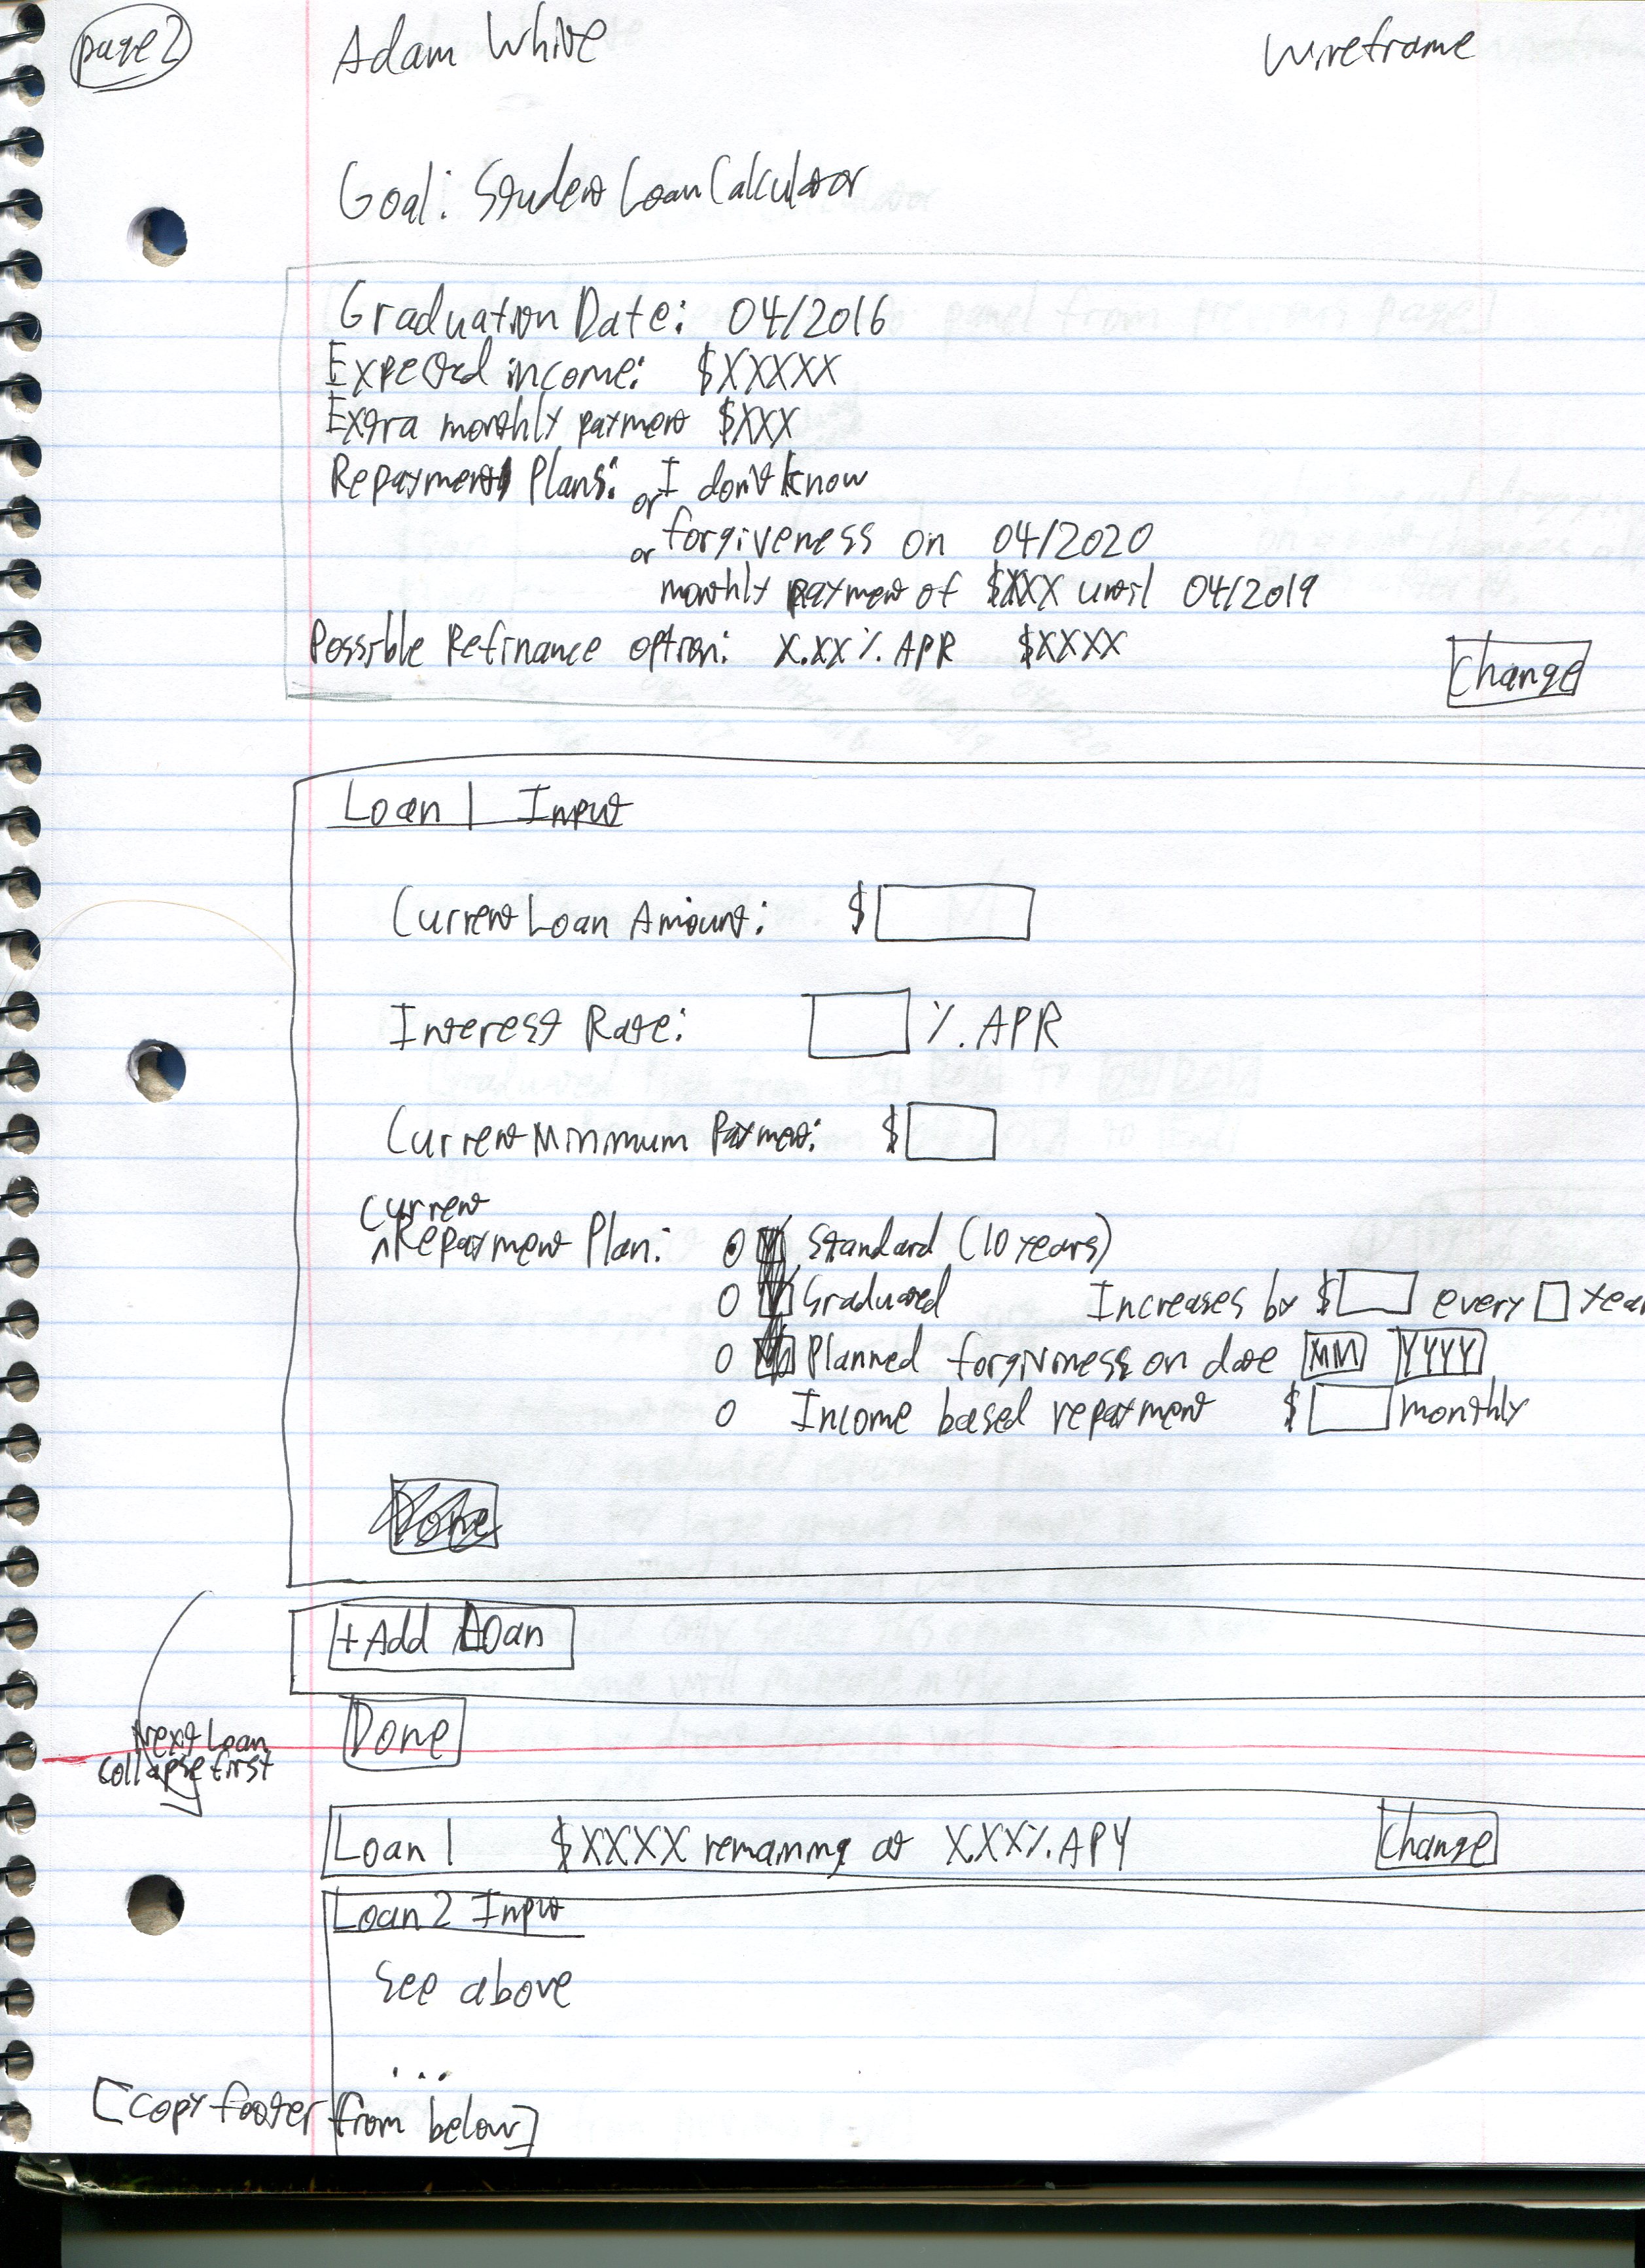 page 2
Adam White
Wireframe
Goal: Student Loan Calculator
Graduation Date: 04/2016
Expected income: $XXXXX
Extra monthly payment $XXX
Repayment Plans: I don't know
or forgiveness on 04/2020
or monthly payment of $XXX until 04/2019
Possible Refinance option: X.XX % APR $XXXX
Change
Loan 1 Input
Current Loan Amount: $
Interest Rate: % APR
Current Minimum Payment: $
Current
^Repayment Plan: Standard (10 years)
Graduated Increases by $ every year
Planned forgiveness on date MM YYYY
Income based repayment $ monthly
Done
+Add Loan
Done
Next Loan
collapse first
Loan 1 $XXXX remaining at X.XX%.APY Change
Loan 2 Input
See above
...
[copy footer from below]